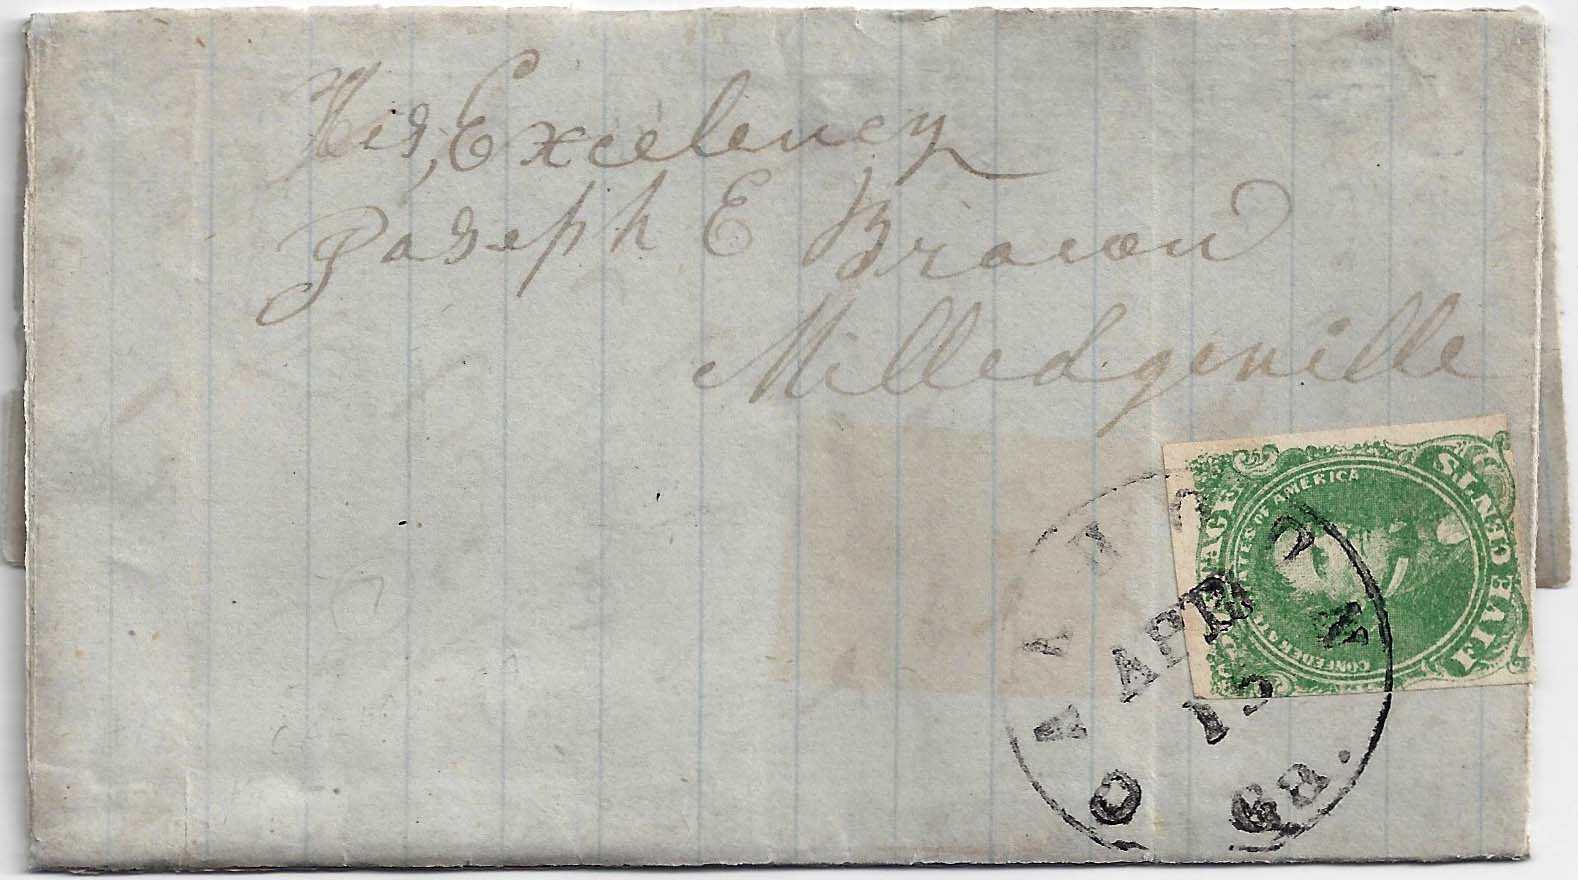 His, Excelency
Joseph E Brown
Milledgeville
CONFEDERATE STATES OF AMERICA
FIVE CENTS
APR
Ga.